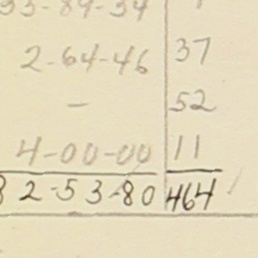 33-89-34
2-64-46 37
- 52
4-00-00 11
82-53-80 464